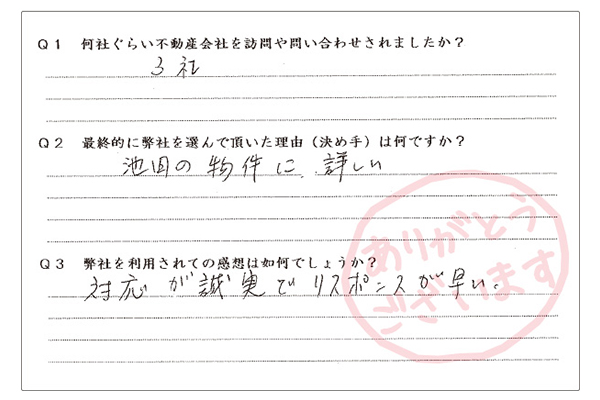 Q1 何社ぐらい不動産会社を訪問や問い合わせされましたか？
3社
Q2 最終的に弊社を選んで頂いた理由（決め手）は何ですか？
池田の物件に詳しい
Q3 弊社を利用されての感想は如何でしょうか？
対応が誠実でリスポンスが早い。
ありがとう
ございます